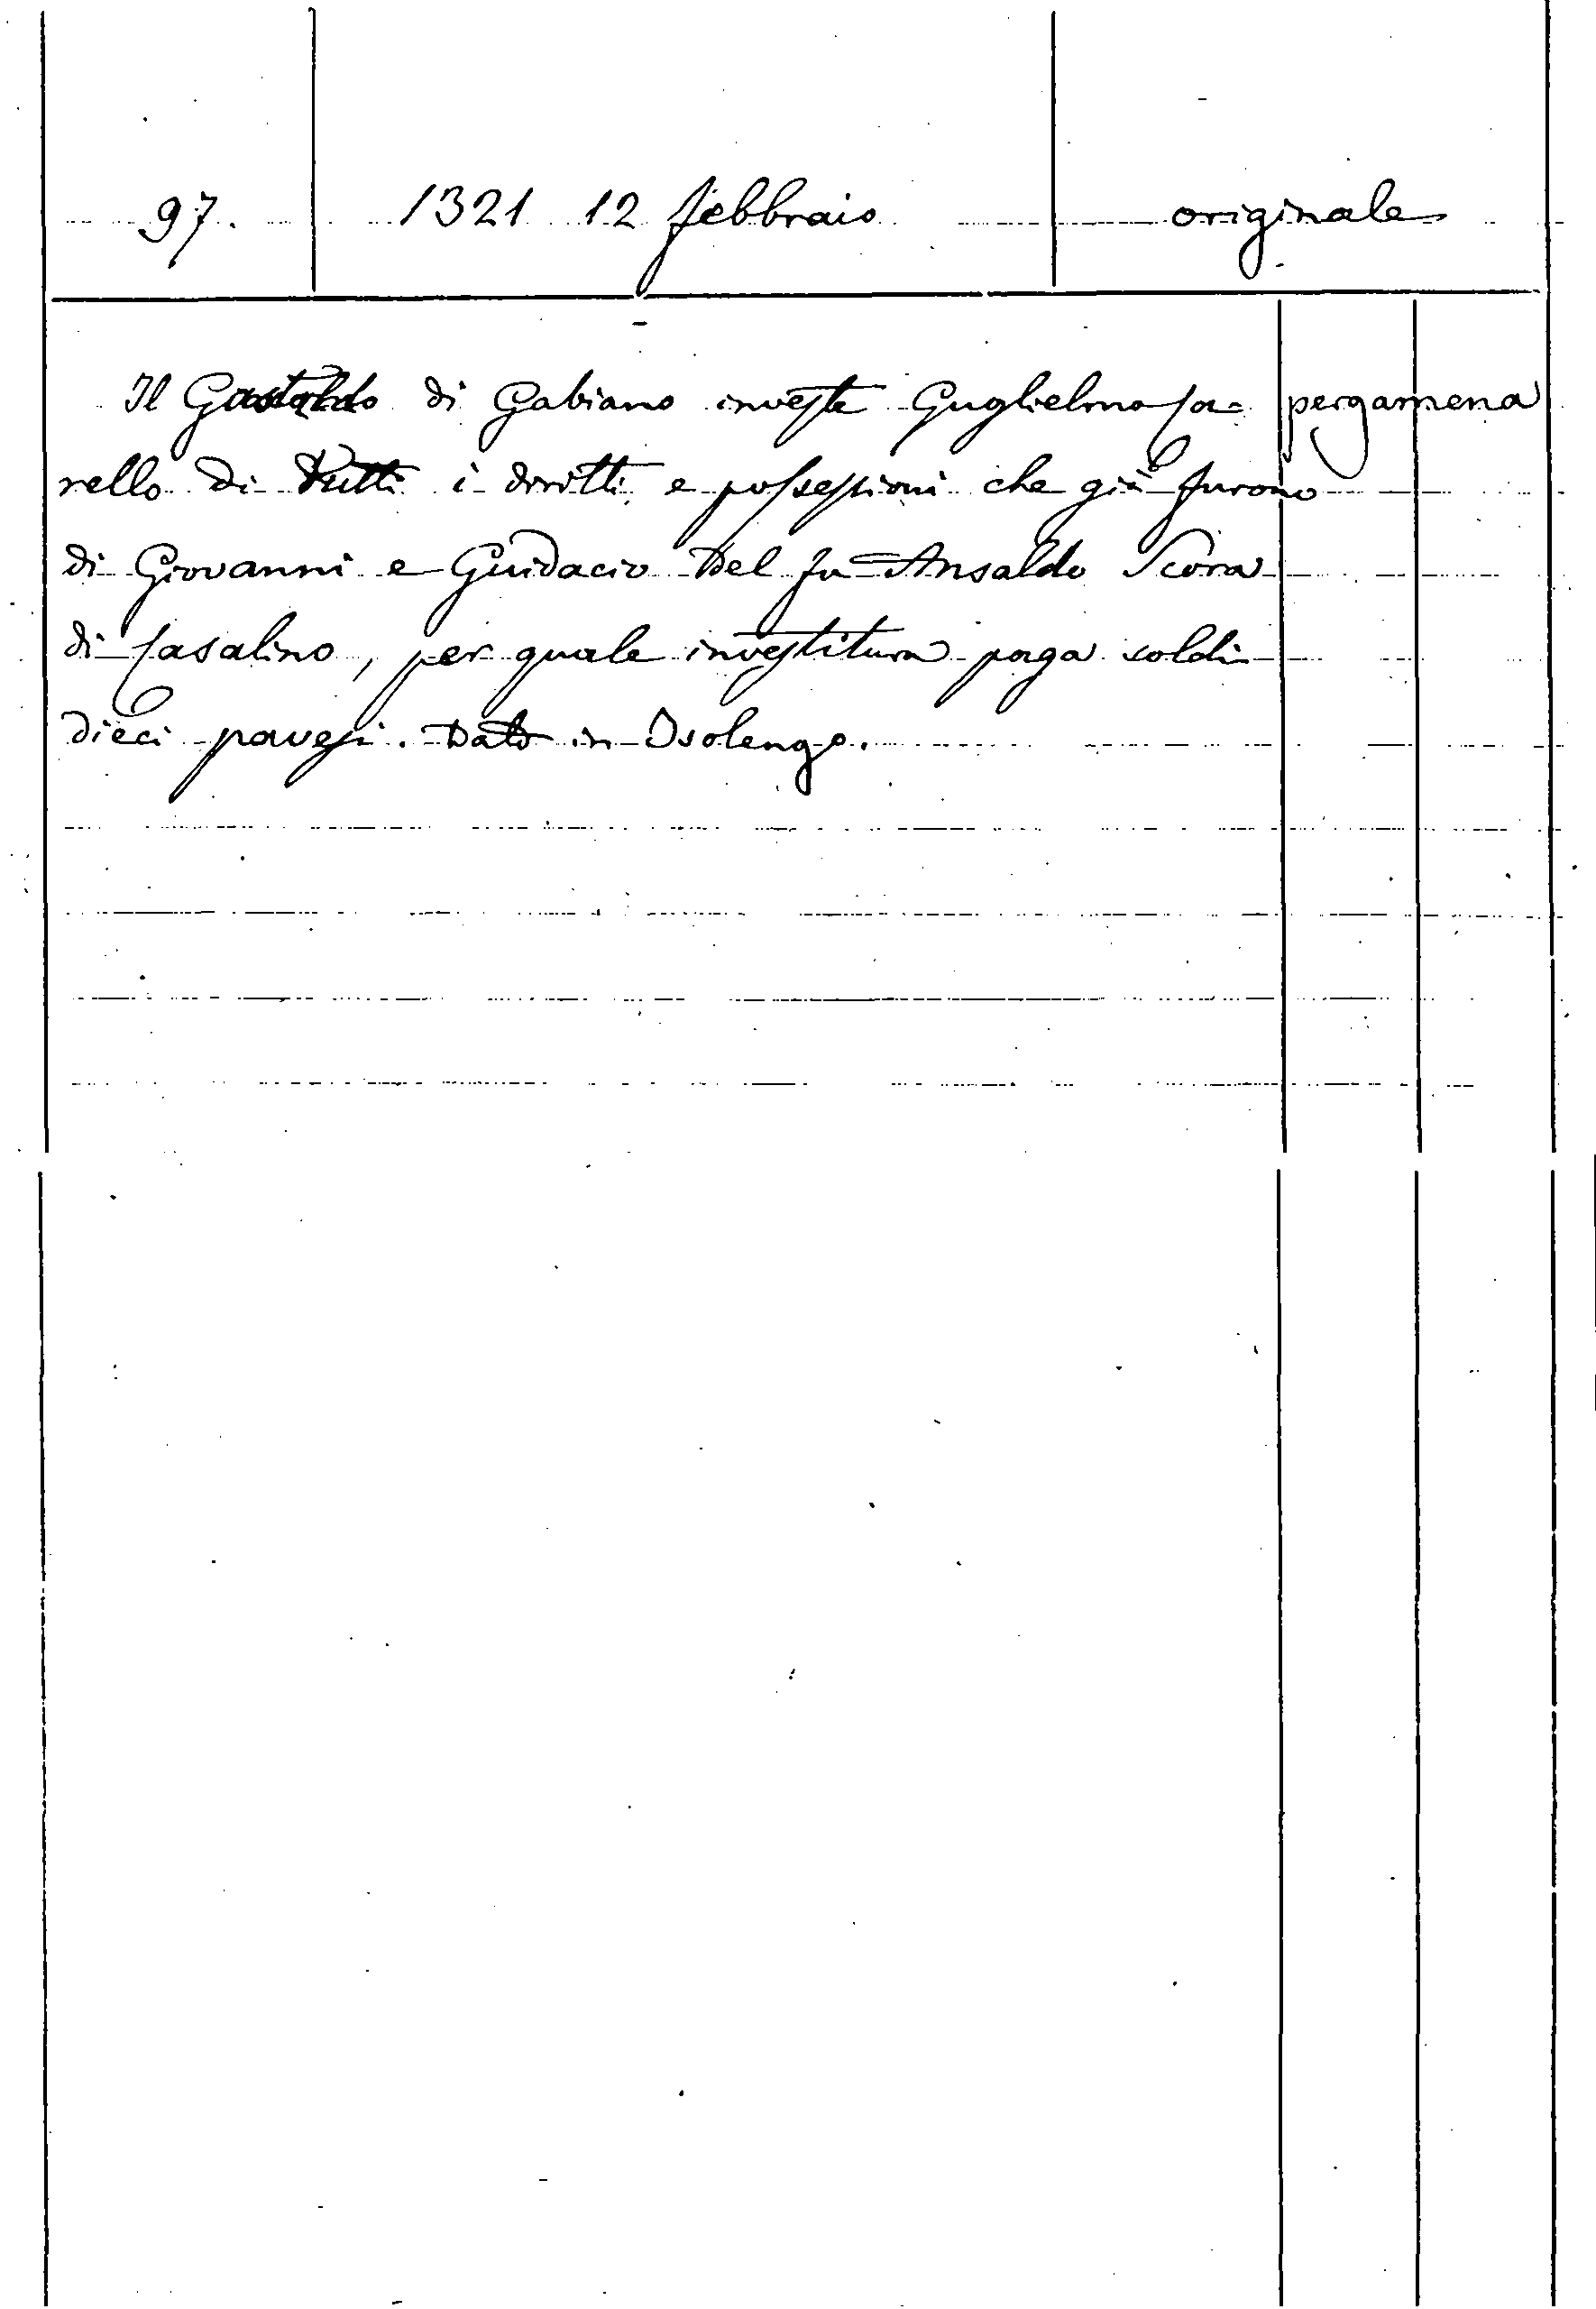 97. 1321 12 febbraio originale
Il Gastaldo di Gabiano investe Guglielmo Ca= pergamena
rello di tutti i diritti e possessioni che già furono
di Giovanni e Guidacio del fu Ansaldo Scora
di Casalino, per quale investitura paga soldi
dieci pavesi. Dato in Isolengo.